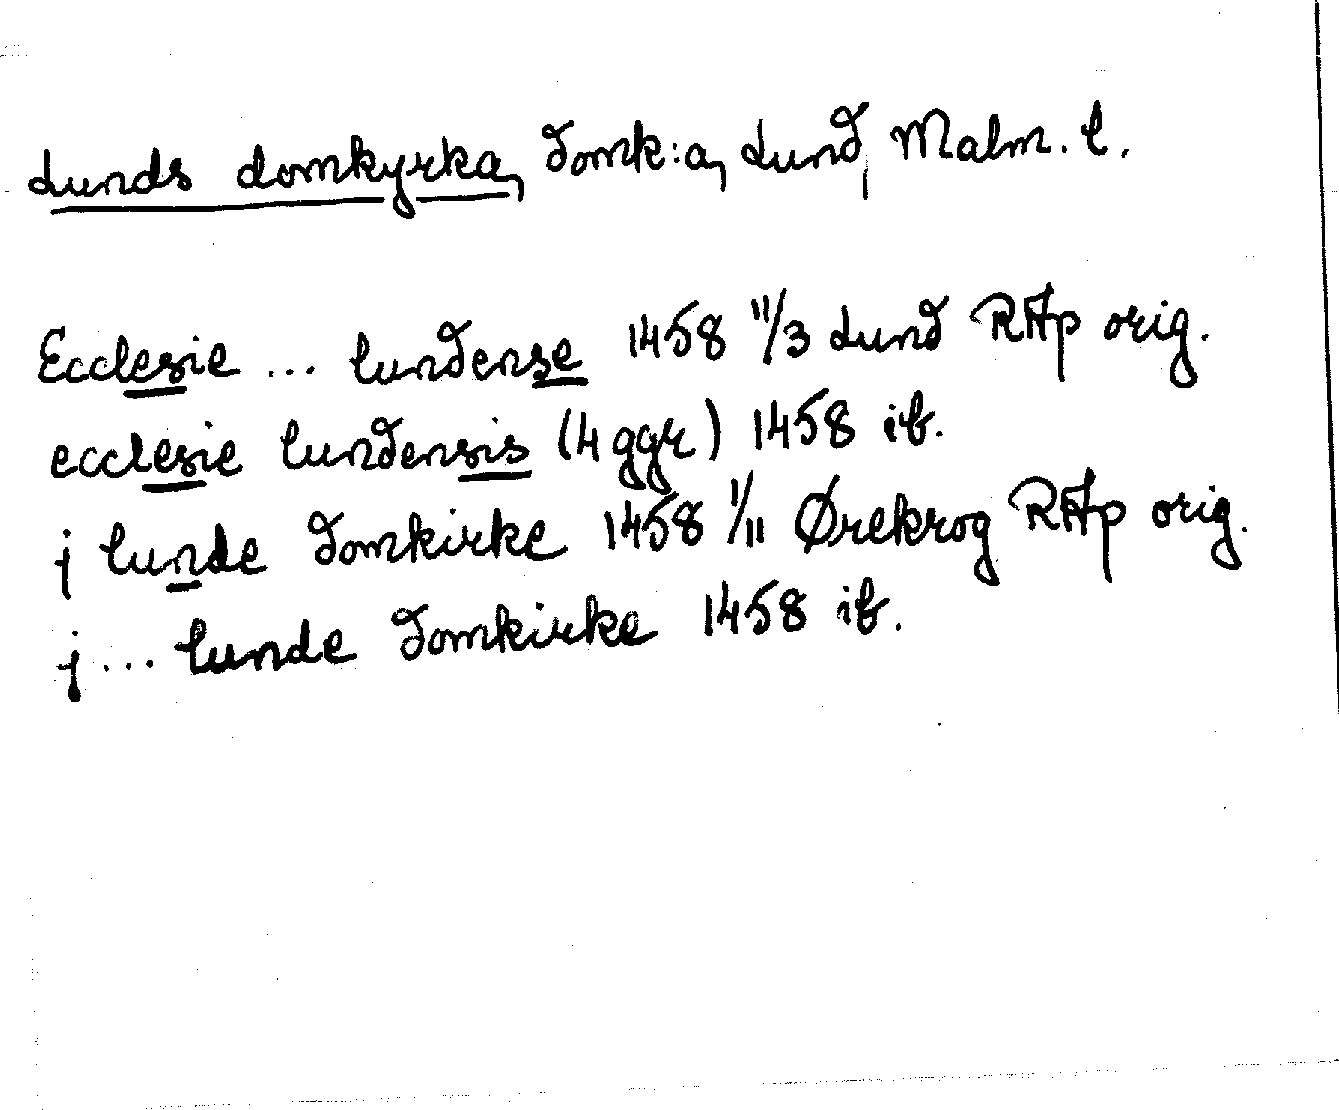 Lunds domkyrka, domk:a, Lund, Malm. l.
Ecclesie ... lundense 1458 11/3 Lund RAp orig.
ecclesie lundensis (4 ggr) 1458 ib.
j lunde domkirke 1458 1/11 Ørekrog RAp orig.
j ... lunde domkirke 1458 ib.